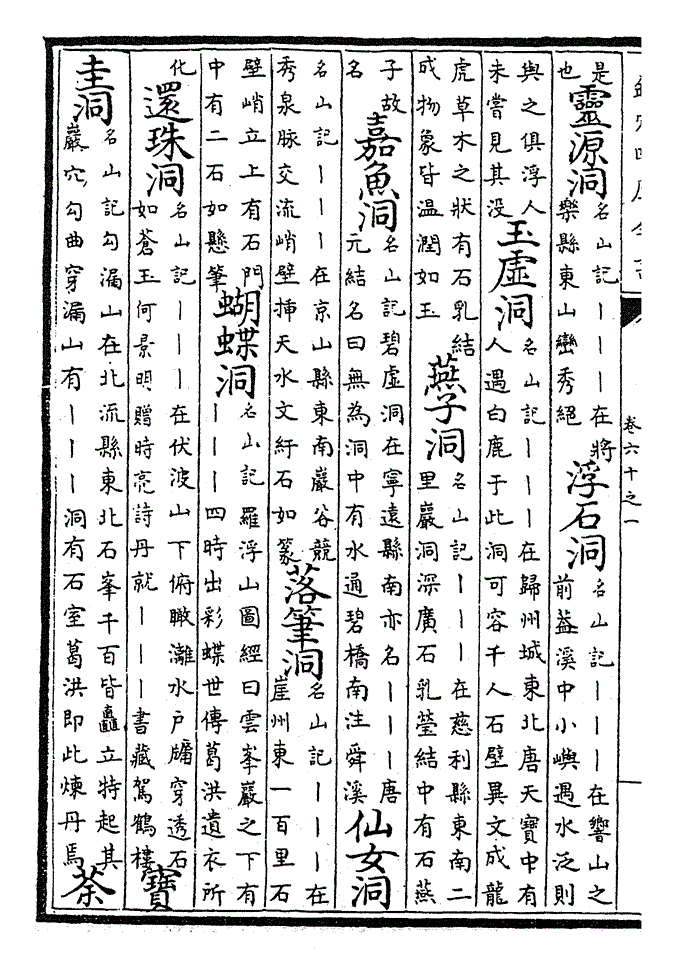 卷六十之一
是也靈源洞名山記｜｜｜在將樂縣東山巒秀絕浮石洞名山記｜｜｜在響山之前葢溪中小嶼遇水泛則
與之俱浮人未嘗見其沒玉虛洞名山記｜｜｜在歸州城東北唐天寶中有人遇白鹿于此洞可容千人石壁異文成龍
虎草木之狀有石乳結成物象皆温潤如玉燕子洞名山記｜｜｜在慈利縣東南二里巖洞深廣石乳瑩結中有石燕
子故名嘉魚洞名山記碧虛洞在寧遠縣南亦名｜｜｜唐元結名曰無為洞中有水通碧橋南注舜溪仙女洞
名山記｜｜｜在京山縣東南巖谷競秀泉脉交流峭壁揷天水文紆石如篆落筆洞名山記｜｜｜在崖州東一百里石
壁峭立上有石門中有二石如懸筆蝴蝶洞名山記羅浮山圖經曰雲峯巖之下有｜｜｜四時出彩蝶世傳葛洪遺衣所
化還珠洞名山記｜｜｜在伏波山下俯瞰灕水戶牖穿透石如蒼玉何景明贈時亮詩丹就｜｜｜書藏駕鶴樓寶
圭洞名山記勾漏山在北流縣東北石峯千百皆矗立特起其巖穴勾曲穿漏山有｜｜｜洞有石室葛洪即此煉丹焉荼